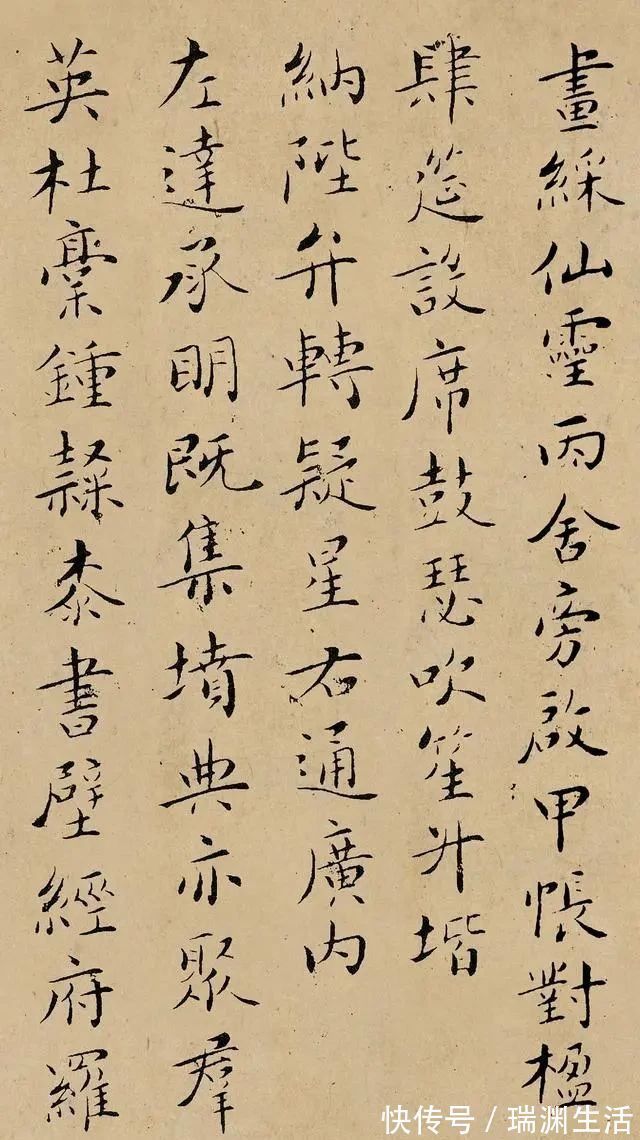 畫綵仙靈丙舍旁啟甲帳對楹
肆筵設席鼓瑟吹笙升堦
納陛弁轉疑星右通廣內
左達承明既集墳典亦聚羣
英杜稾鍾隸桼書壁經府羅
快传号／瑞渊生活